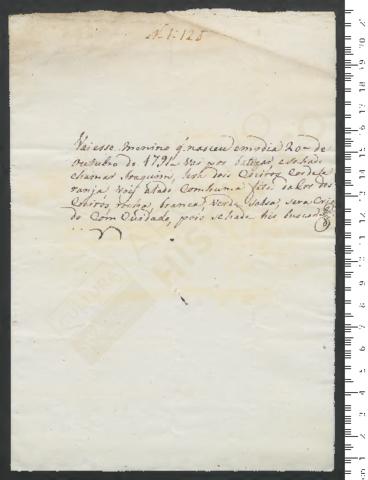 N. 1:128
Vai esse Menino q. nasceu em o dia 20 de
Outubro de 1791 Vai por batizar, e se hade
chamar Joaquim, leva dois Cueiros Cor de la
ranja Vai atado Com huma fita da Cor dos
Cueiros, roxa, branca, Verde Salsa, sera Cria
do Com Cuidado, pois se hade hir buscar